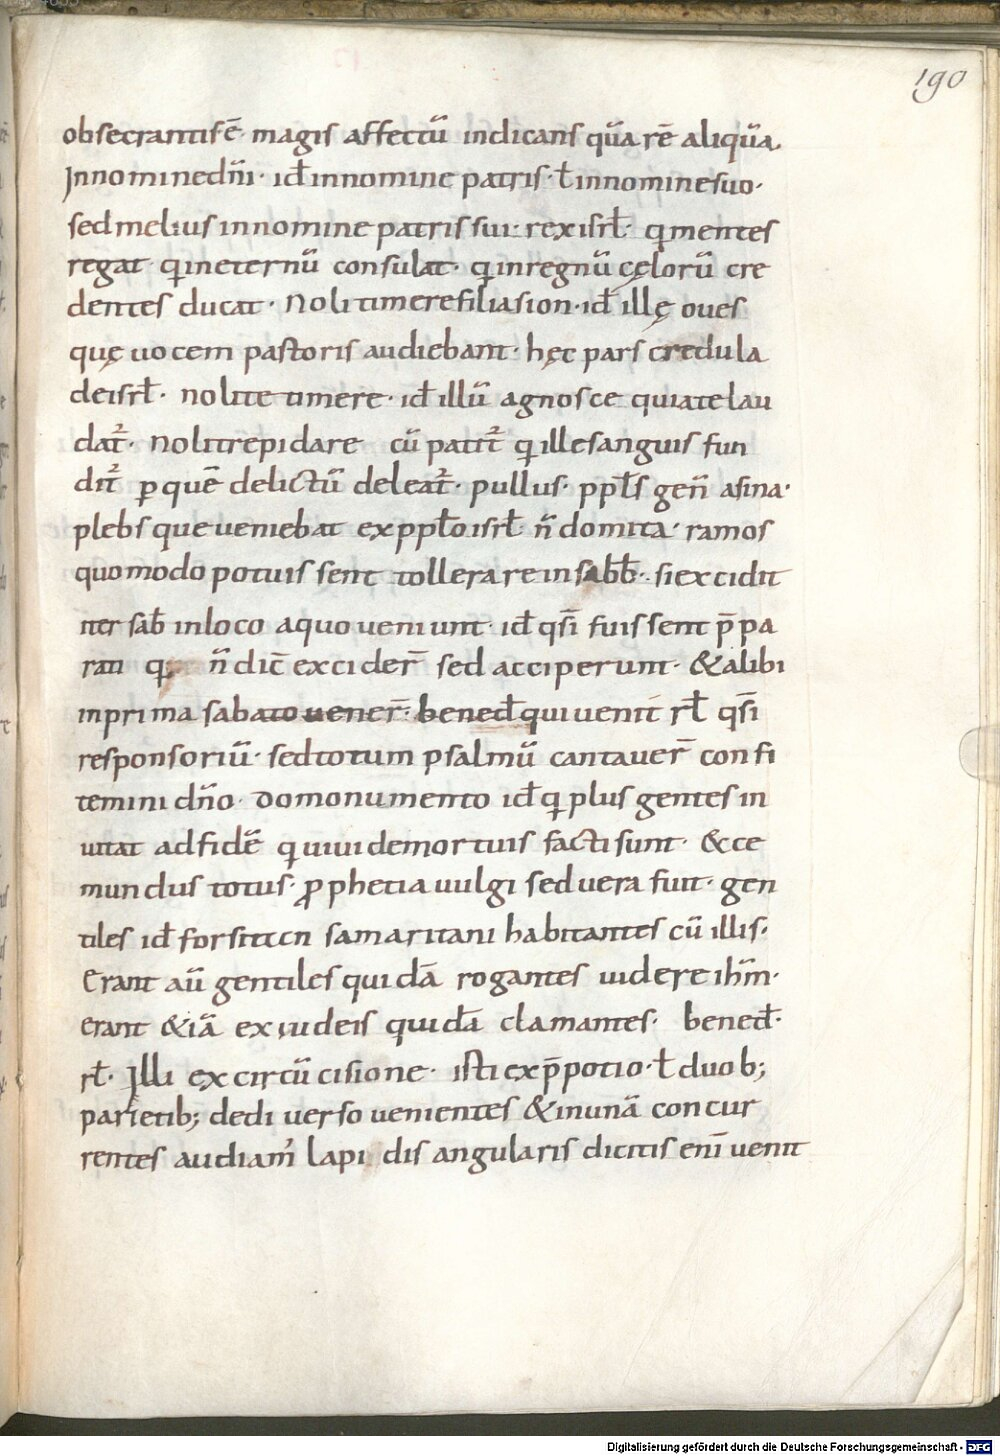 190
obsecrantis ē magis affectū indicans quā rē aliquā.
In nomine dn̄i · id̄ in nomine patris · ł in nomine suo ·
sed melius in nomine patris sui · rex isrł · q̄ mentes
regat q̄ in eternū consulat · q̄ in regnū cęlorū cre
dentes ducat · Noli timere filia sion · id̄ illę oues
quę uocem pastoris audiebant · hęc pars credula
de isrł · nolite timere · id̄ illū agnosce qui a te lau
dat᷑ · noli trepidare cū patit᷑ q̄ ille sanguis fun
dit᷑ ꝑ quē delictū deleat᷑ · pullus · ppłs gen̄ asina ·
plebs que ueniebat ex ppło isrł n̄ domita · ramos
quomodo potuissent tollerare in sabb̄ · si excidit
iter sab̄ in loco a quo ueniunt · id̄ qs̄i fuissent p̄pa
rati q; n̄ dic̄ excider̄ sed acciperunt · & alibi
in prima sabato uener̄ · bened̄ qui uenit rł qs̄i
responsoriū · sed totum psalmū cantauer̄ confi
temini dn̄o · Do monumento id̄ q̄ plus gentes in
uitat ad fidē q uiui de mortuis facti sunt · & ce
mundus totus · ꝓphetia uulgi sed uera fuit · gen
tiles id̄ forsitccn samaritani habitantes cū illis ·
Erant aū gentiles quidā rogantes uidere ihm̄ ·
erant & iā ex iudeis quidā clamantes · bened̄ ·
rł · Illi ex circūcisione · isti ex p̄potio · ł duob;
parietib; de diuerso uenientes & in unā concur
rentes audiam᷒ lapidis angularis dicitis eni᷒ uenit
Digitalisierung gefördert durch die Deutsche Forschungsgemeinschaft - DFG